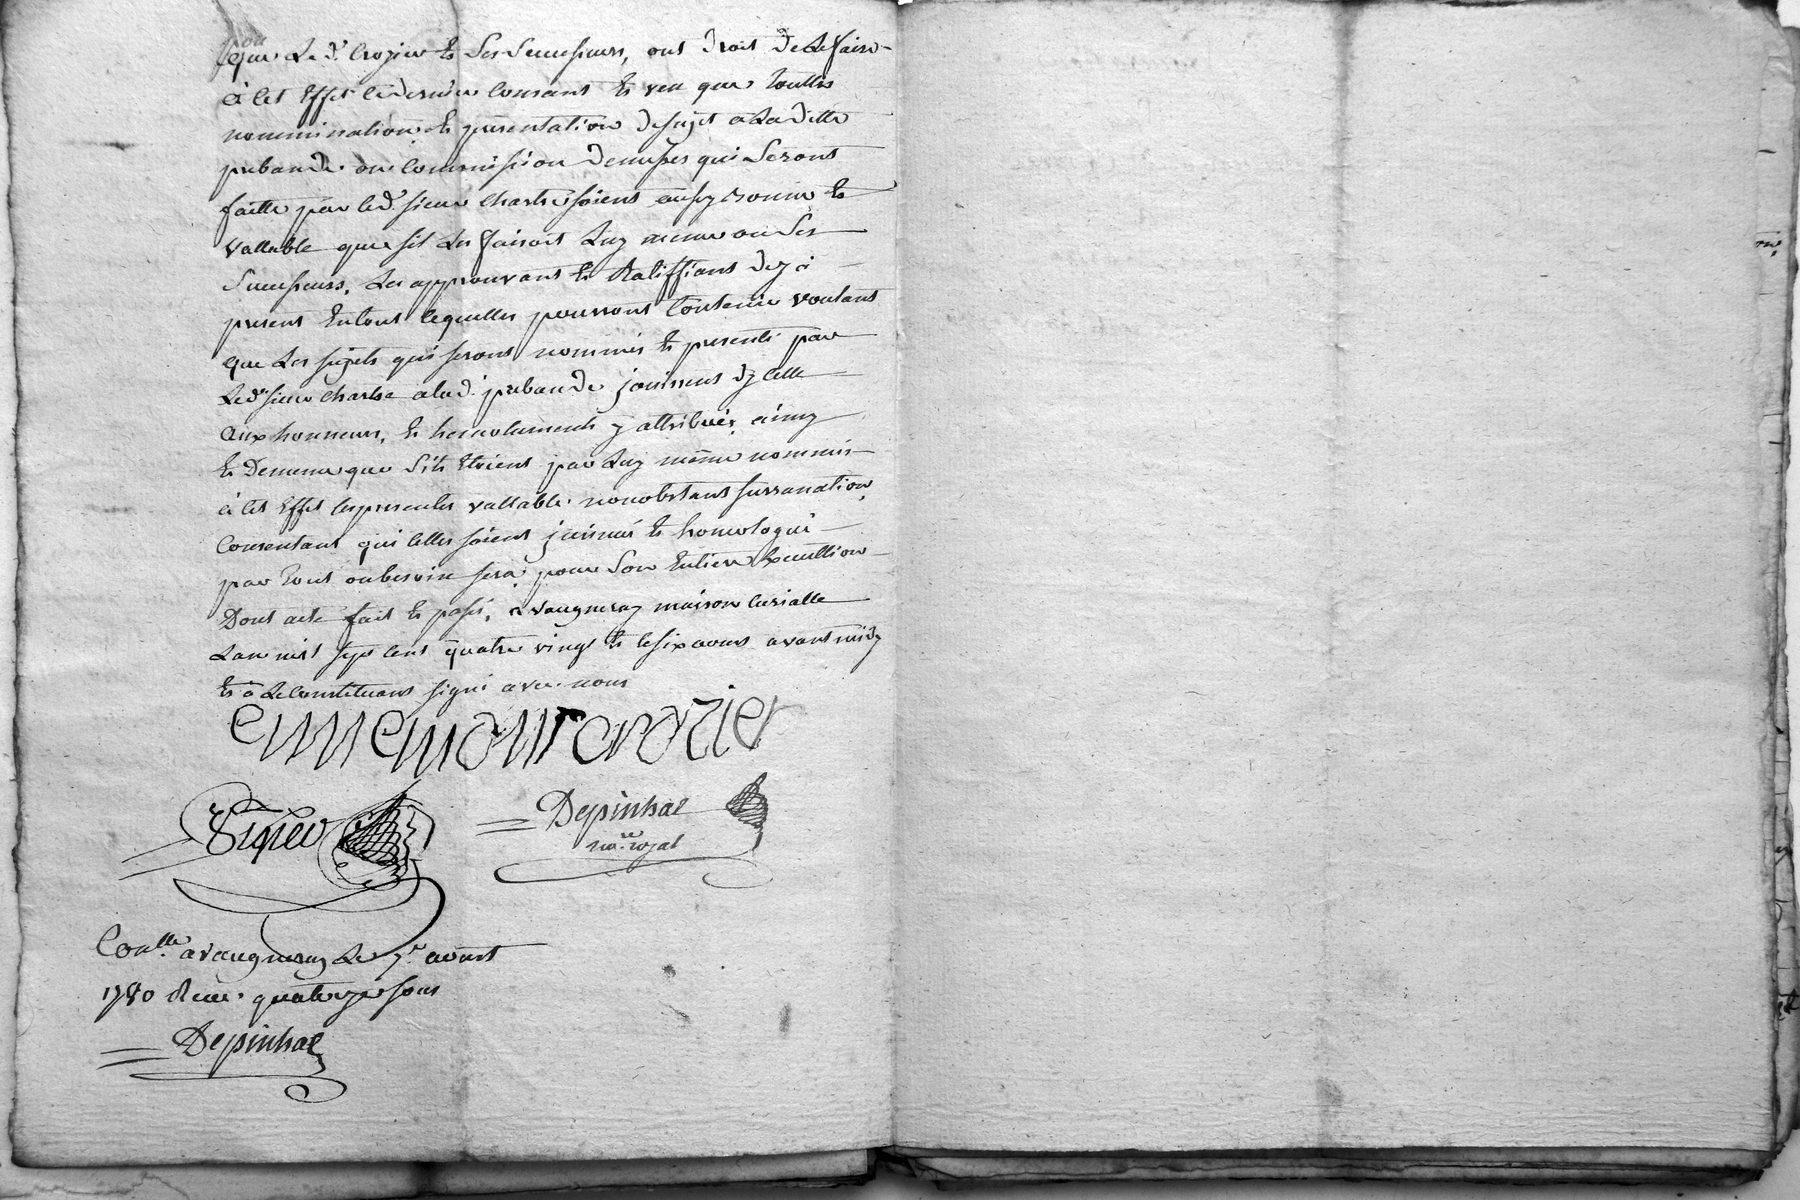 que Le d.t Crozier et Ses Successeurs, ont droit de Le faire
à cet Effet ce dernier Consant et veu que touttes
nommination et presentation de sujet a La ditte
prebande ou Commission de messes qui Seront
faitte par led.t sieur Charles soient aussy bonne et
vallable que sil Les faisoit Luy meme ou Ses
Successeurs, Les approuvant et Ratiffiant dez à
present En tout ce quelles pourront Contenir voulant
que Les sujets qui seront nommés et presenté par
Le d.t sieur Charles a la d. prebande jouissent dy celle
aux honneurs, et hemolument y attribués, ainsy
et De meme que Sils Etoient par Luy même nommés
à cet Effet les presentes vallable nonobstant surranation,
Consentant qui Celles soient insinué et homologué
par tout ou besoin sera, pour Son Entiere Executtion
Dont acte fait et passé, à vaugneray maison Curialle
Lan mil sept Cent quatre vingt et le six aoust avant midy
et a Le Constituant signé avec nous
ennemont crozier
Depinhac
no.re royal
Con.lle a vaugneray Le 7.e aoust
1780 Reçu quatorze sous
Depinhac